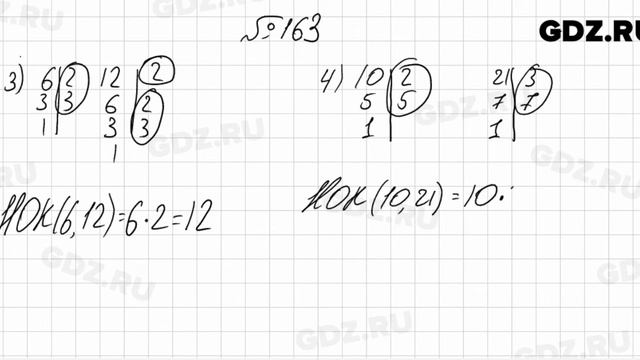 №163
GDZ.RU
3) 6 | 2 12 | 2
3 | 3 6 | 2
1 | 3 | 3
1
НОК(6,12)=6·2=12
4) 10 | 2 21 | 3
5 | 5 7 | 7
1 | 1 |
НОК(10,21)=10·
GDZ.RU
GDZ.RU
GDZ.RU
GDZ.RU
GDZ.RU